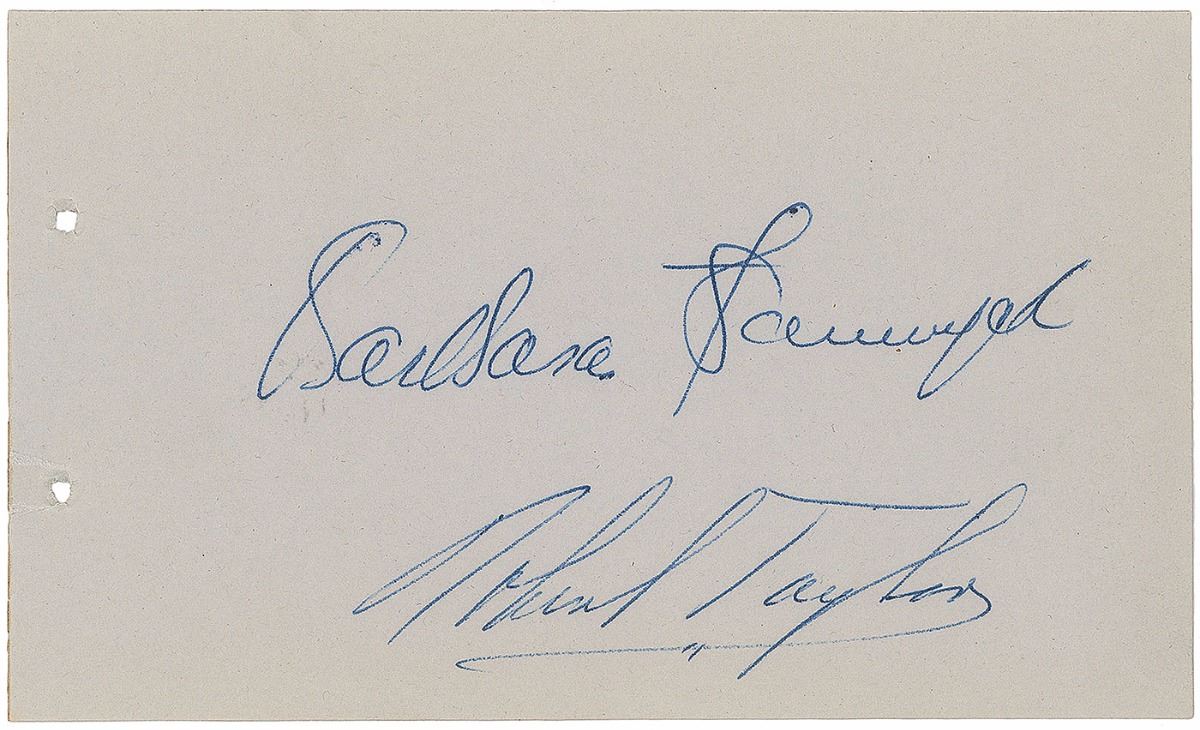 Barbara Stanwyck
Robert Taylor